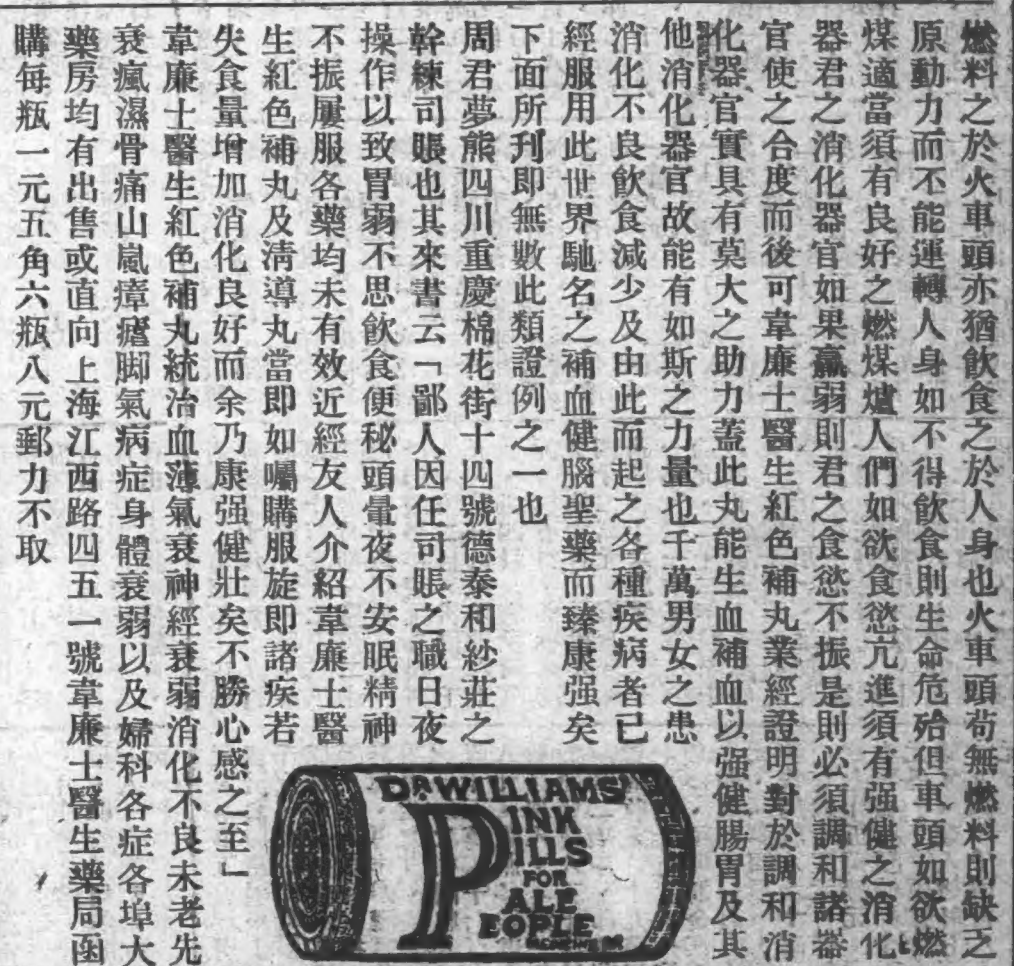 燃料之於火車頭亦猶飲食之於人身也火車頭苟無燃料則缺乏
原動力而不能運轉人身如不得飲食則生命危殆但車頭如欲燃
煤適當須有良好之燃煤爐人們如欲食慾亢進須有强健之消化
器君之消化器官如果羸弱則君之食慾不振是則必須調和諸器
官使之合度而後可韋廉士醫生紅色補丸業經證明對於調和消
化器官實具有莫大之助力蓋此丸能生血補血以强健腸胃及其
他消化器官故能有如斯之力量也千萬男女之患
消化不良飲食減少及由此而起之各種疾病者已
經服用此世界馳名之補血健腦聖藥而臻康强矣
下面所刊即無數此類證例之一也
周君夢熊四川重慶棉花街十四號德泰和紗莊之
幹練司賬也其來書云「鄙人因任司賬之職日夜
操作以致胃弱不思飲食便秘頭暈夜不安眠精神
不振屢服各藥均未有效近經友人介紹韋廉士醫
生紅色補丸及清導丸當即如囑購服旋即諸疾若
失食量增加消化良好而余乃康强健壯矣不勝心感之至」
韋廉士醫生紅色補丸統治血薄氣衰神經衰弱消化不良未老先
衰瘋濕骨痛山嵐瘴瘧脚氣病症身體衰弱以及婦科各症各埠大
藥房均有出售或直向上海江西路四五一號韋廉士醫生藥局函
購每瓶一元五角六瓶八元郵力不取
DR WILLIAMS'
PINK
PILLS
FOR
PALE
PEOPLE